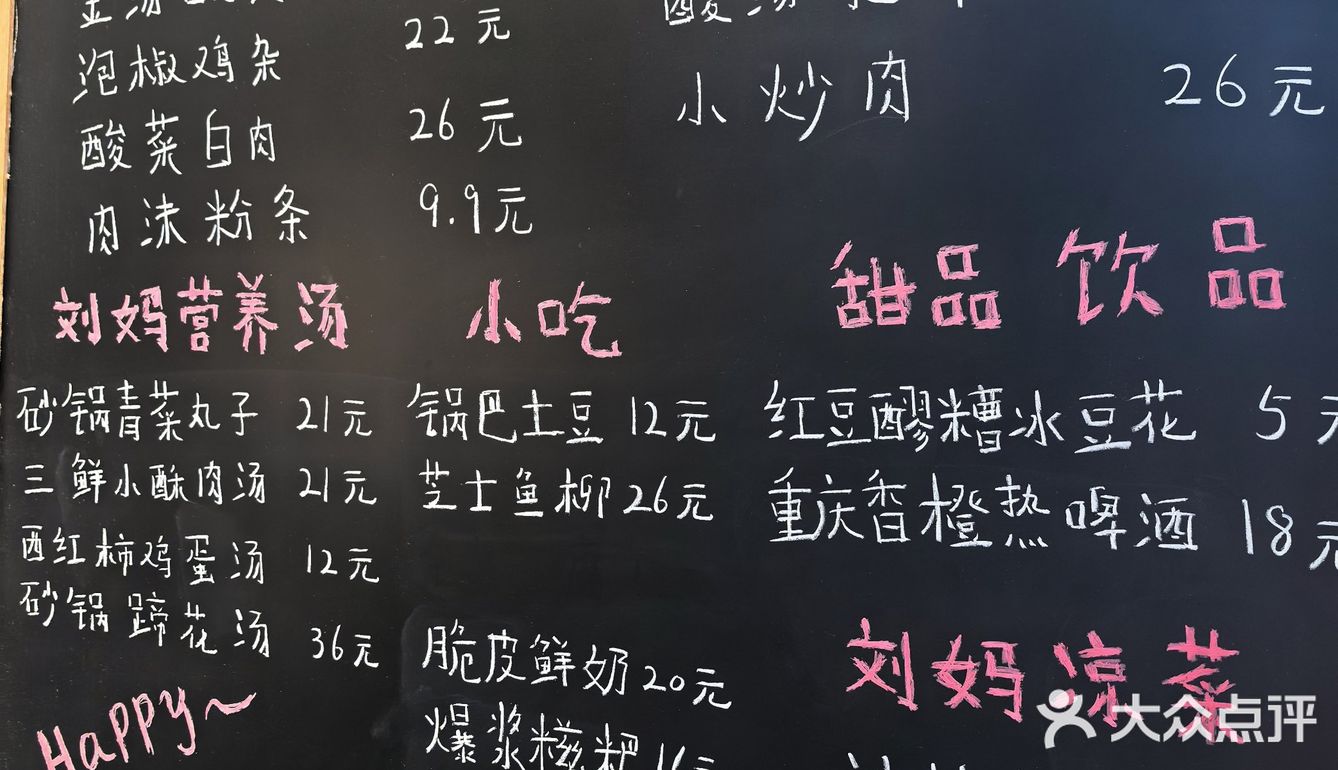 泡椒鸡杂 22元
酸菜白肉 26元
肉沫粉条 9.9元
小炒肉 26元
刘妈营养汤
砂锅青菜丸子 21元
三鲜小酥肉汤 21元
西红柿鸡蛋汤 12元
砂锅蹄花汤 36元
Happy~
小吃
锅巴土豆 12元
芝士鱼柳 26元
脆皮鲜奶 20元
爆浆糍粑
甜品饮品
红豆醪糟冰豆花 5元
重庆香橙热啤酒 18元
刘妈凉菜
大众点评